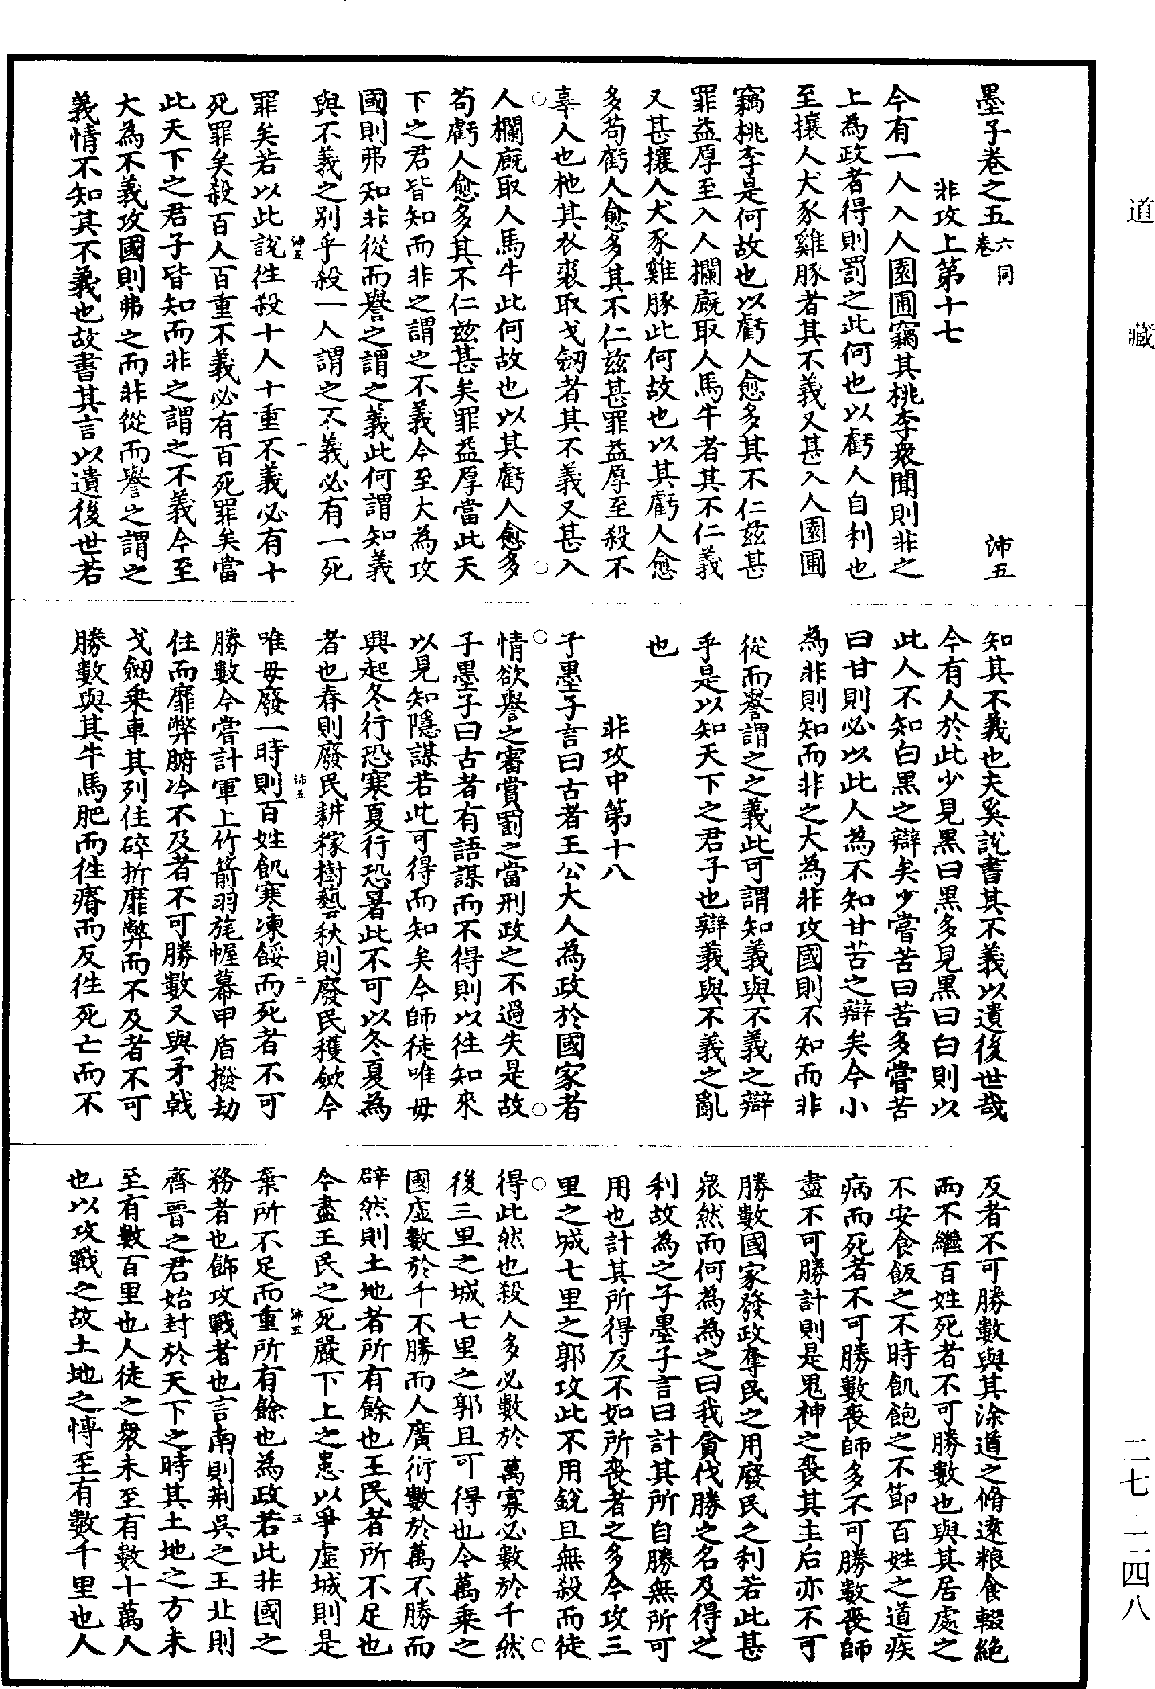 道藏
墨子卷之五 六同卷 沛五
非攻上第十七
今有一人入人園圃竊其桃李衆聞則非之
上為政者得則罰之此何也以虧人自利也
至攘人犬豕雞豚者其不義又甚入人園圃
竊桃李是何故也以虧人愈多其不仁茲甚
罪益厚至入人攔廐取人馬牛者其不仁義
又甚攘人犬豕雞豚此何故也以其虧人愈
多苟虧人愈多其不仁茲甚罪益厚至殺不
辜人也杝其衣裘取戈劒者其不義又甚入
人欄廐取人馬牛此何故也以其虧人愈多
苟虧人愈多其不仁茲甚矣罪益厚當此天
下之君皆知而非之謂之不義今至大為攻
國則弗知非從而譽之謂之義此何謂知義
與不義之別乎殺一人謂之不義必有一死
沛五 一
罪矣若以此說往殺十人十重不義必有十
死罪矣殺百人百重不義必有百死罪矣當
此天下之君子皆知而非之謂之不義今至
大為不義攻國則弗之而非從而譽之謂之
義情不知其不義也故書其言以遺後世若
知其不義也夫奚說書其不義以遺後世哉
今有人於此少見黑曰黑多見黑曰白則以
此人不知白黑之辯矣少嘗苦曰苦多嘗苦
曰甘則必以此人為不知甘苦之辯矣今小
為非則知而非之大為非攻國則不知而非
從而譽謂之之義此可謂知義與不義之辯
乎是以知天下之君子也辯義與不義之亂
也
非攻中第十八
子墨子言曰古者王公大人為政於國家者
情欲譽之審賞罰之當刑政之不過失是故
子墨子曰古者有語謀而不得則以往知來
以見知隱謀若此可得而知矣今師徒唯毋
興起冬行恐寒夏行恐暑此不可以冬夏為
者也春則廢民耕稼樹藝秋則廢民穫斂今
沛五 二
唯毋廢一時則百姓飢寒凍餒而死者不可
勝數今嘗計軍上竹箭羽旄幄幕甲盾撥劫
往而靡弊腑冷不及者不可勝數又與矛戟
戈劒乘車其列住碎折靡弊而不及者不可
勝數與其牛馬肥而往瘠而反往死亡而不
反者不可勝數與其涂道之脩遠粮食輟絕
而不繼百姓死者不可勝數也與其居處之
不安食飯之不時飢飽之不節百姓之道疾
病而死者不可勝數喪師多不可勝數喪師
盡不可勝計則是鬼神之喪其主后亦不可
勝數國家發政奪民之用廢民之利若此甚
衆然而何為為之曰我貪伐勝之名及得之
利故為之子墨子言曰計其所自勝無所可
用也計其所得反不如所喪者之多今攻三
里之城七里之郭攻此不用銳且無殺而徒
得此然也殺人多必數於萬寡必數於千然
後三里之城七里之郭且可得也今萬乘之
國虛數於千不勝而人廣衍數於萬不勝而
辟然則土地者所有餘也王民者所不足也
今盡王民之死嚴下上之患以爭虛城則是
沛五 三
棄所不足而重所有餘也為政若此非國之
務者也飾攻戰者也言南則荆吳之王北則
齊晉之君始封於天下之時其土地之方未
至有數百里也人徒之衆未至有數十萬人
也以攻戰之故土地之慱至有數千里也人
二七—二四八